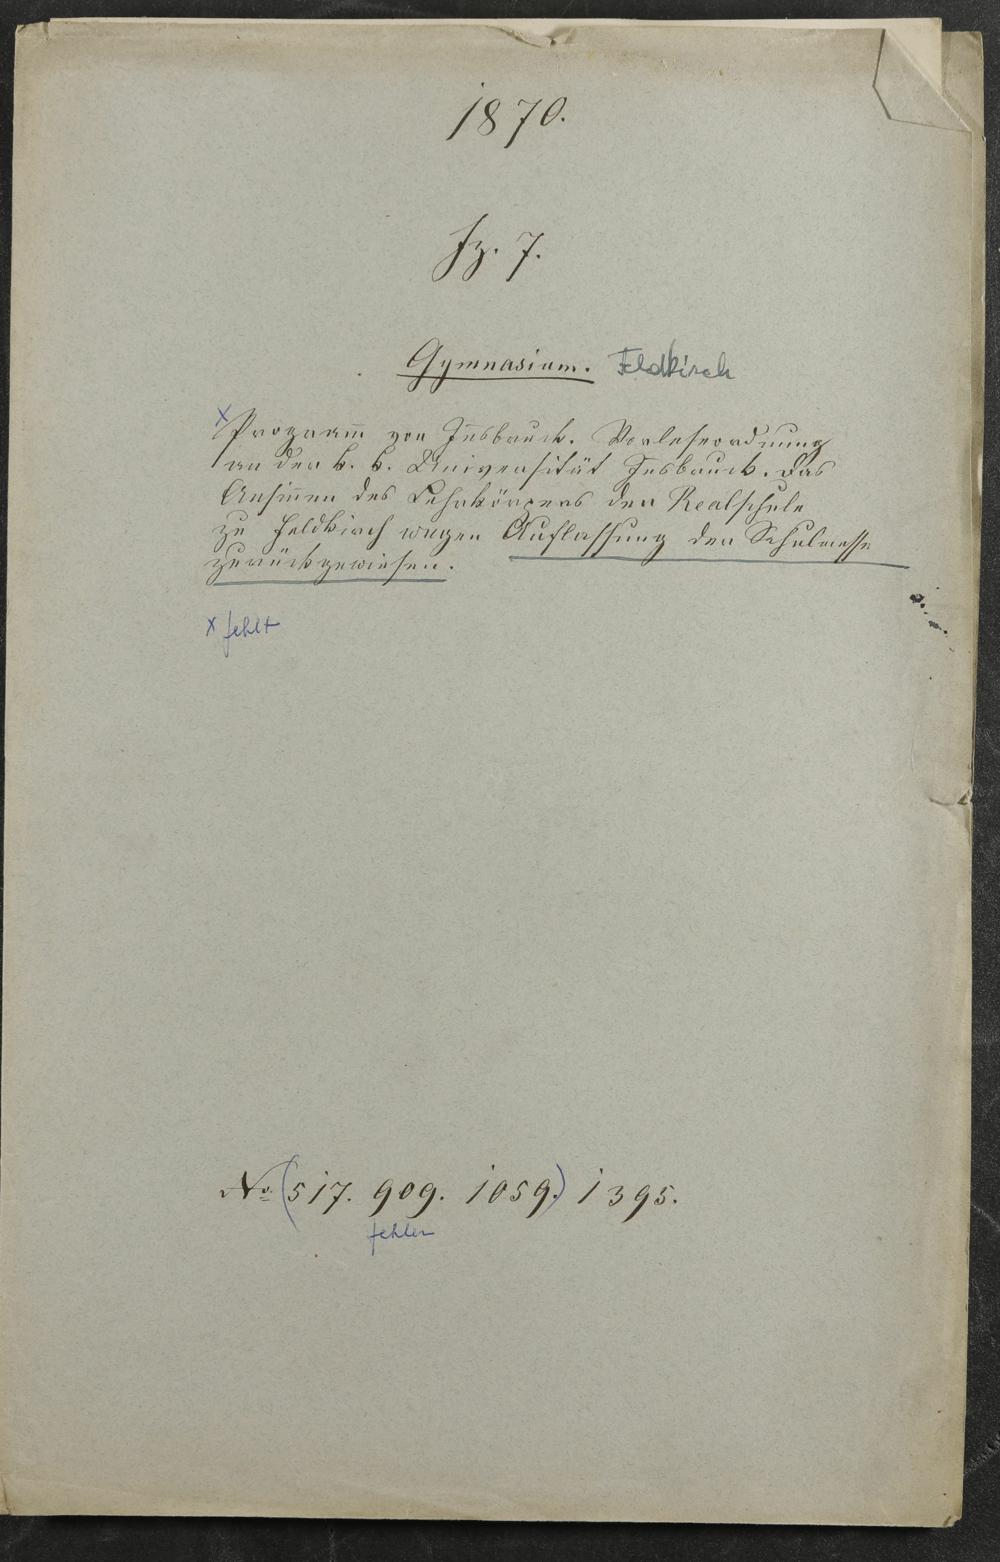 1870.
Fz. 7.
Gymnasium. Feldkirch
x Programm̄ von Insbruck. Vorleseordnung
an der k. k. Universität Insbruck. Das
Ansinnen des Lehrkörpers der Realschule
zu Feldkirch wegen Auflassung der Schulmesse
zurückgewiesen.
x fehlt
No. (517. 909. 1059.) 1395.
fehlen